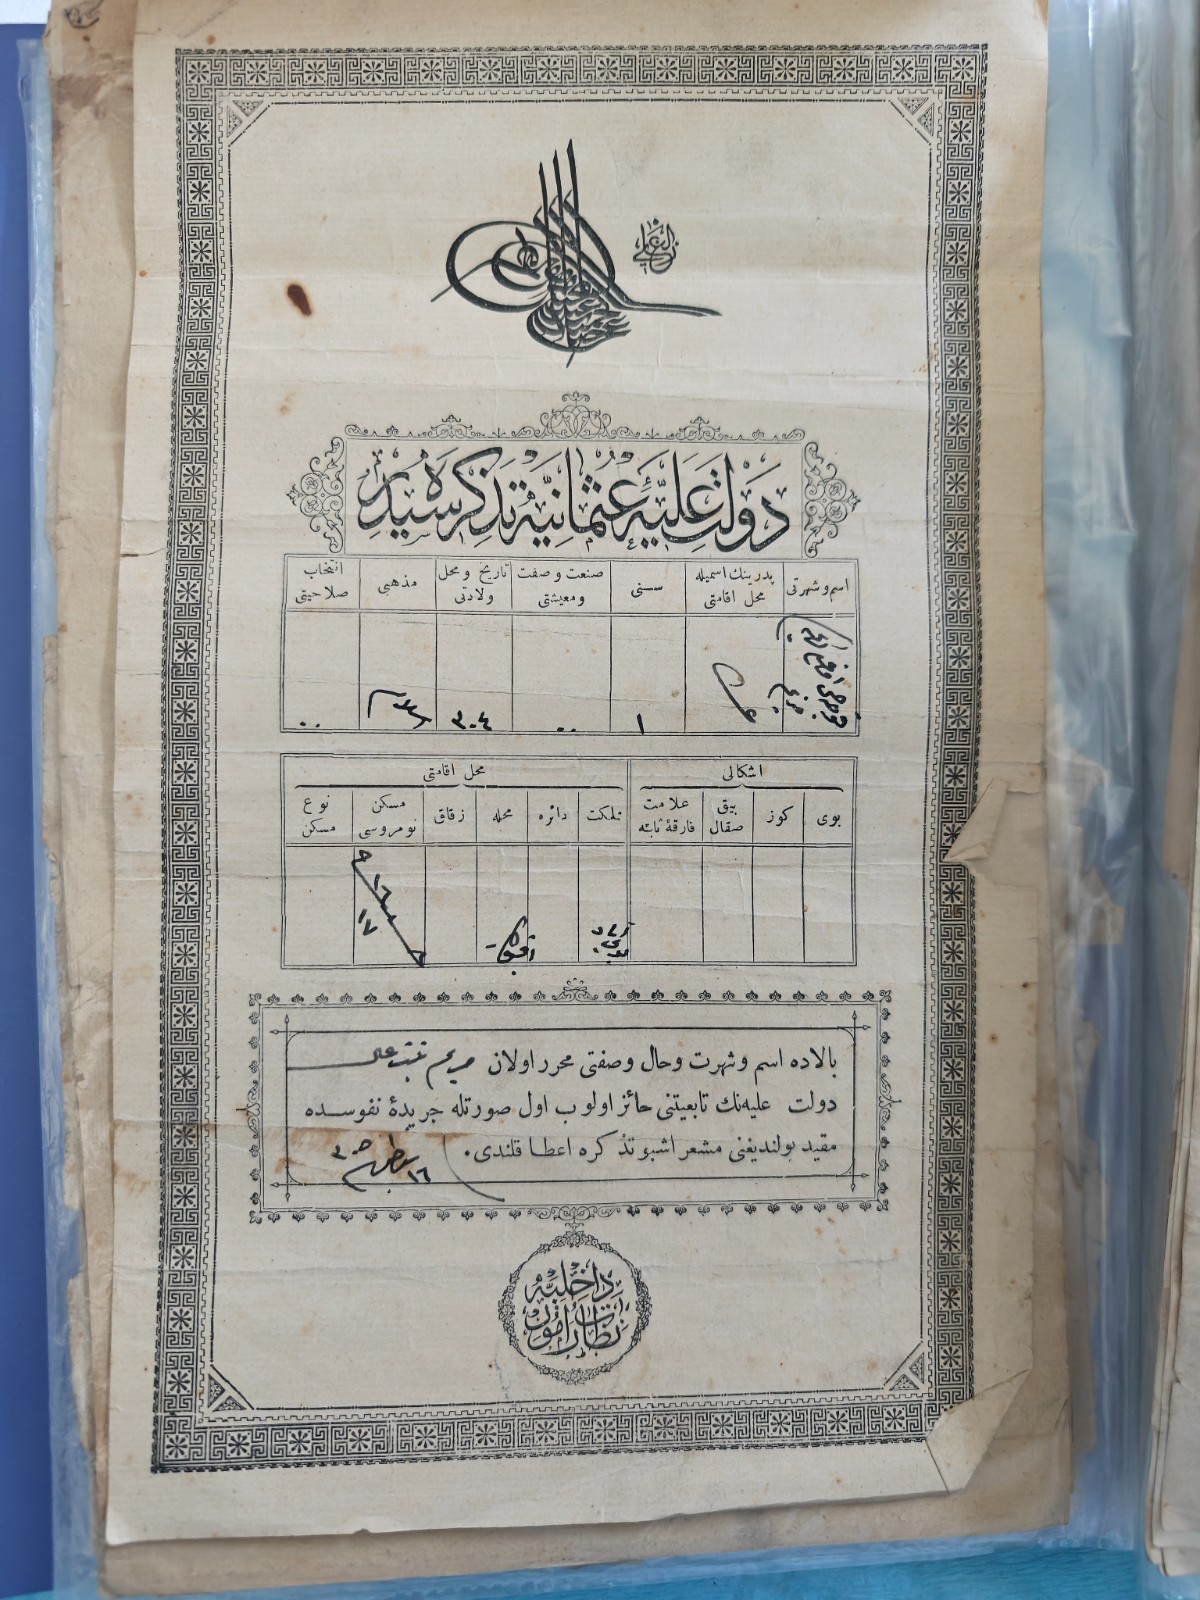 الغازی
دَوْلَتِ عَلِيَّهٔ عُثْمَانِيَّه تَذْكِرَه سِيدِرْ
اسم و شهرتی
پدرینك اسمیله محل اقامتی
سنی
صنعت و صفت و معیشتی
تاریخ و محل ولادتی
مذهبی
انتخاب صلاحیتی
علی
١
٠٠
٣٠٤
اسلام
٠٠
اشكالی
محل اقامتی
بوی
كوز
بیق صقال
علامت فارقهٔ ثابته
مملكت
دائره
محله
زقاق
مسكن نومروسی
نوع مسكن
١٧
بالاده اسم و شهرت و حال و صفتی محرر اولان مریم بنت علی
دولت علیه‌نك تابعیتنی حائز اولوب اول صورتله جریدهٔ نفوسده
مقید بولندیغنی مشعر اشبو تذكره اعطا قلندی.
١٦ مارط سنه ٣٠٥
دَاخِلِيَّه
نِظَارَتِ اُمُورِ